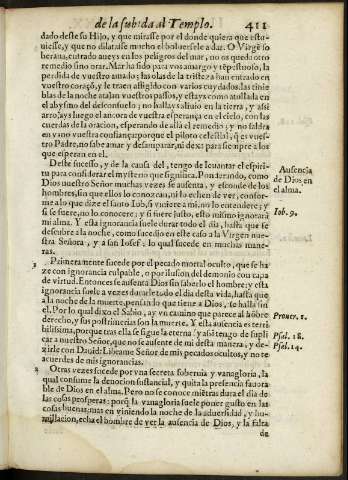 de la subida al Templo. 411
dado deste su Hijo, y que mirasse por el donde quiera que estu-
uiesse, y que no dilatasse mucho el boluersele a dar. O Virgẽ so-
berana, entrado aueys en los peligros del mar, no os quedo otro
remedio sino orar. Mar ha sido para vos amargo y tẽpestuoso, la
perdida de vuestro amado; las olas de la tristeza han entrado en
vuestro coraçõ, y le traen afligido con varios cuydados. las tinie
blas de la noche atajan vuestros passos, y estays como atollada en
el abysmo del desconsuelo; no hallays aliuio en la tierra, y assi
arrojays luego el ancora de vuestra esperança en el cielo, con las
cuerdas de la oracion, esperando de allà el remedio; y no saldra
en vano vuestra confiança: porque el piloto celestial, q̃ es vuef-
tro Padre, no sabe amar y desamparar, ni dexa para siempre a los
que esperan en el.
Deste sucesso, y de la causa del, tengo de leuantar el espiri-
tu para considerar el mysterio que significa. Ponderando, como
Dios nuestro Señor muchas vezes se ausenta, y esconde de los
hombres, sin que ellos lo conozcan, ni lo echen de ver, confor-
me a lo que dize el santo Iob, si viniere a mi, no lo entendere; y
si se fuere, no lo conocere; y si fuere justo, esto mismo ignorarà
mi alma. Y esta ignorancia suele durar todo el dia, hasta que se
descubre a la noche, como sucedio en este caso a la Virgen nues-
tra Señora, y a san Iosef; lo qual sucede en muchas mane-
ras.
Ausencia
de Dios en
el alma.
Iob. 9.
Primeramente sucede por el pecado mortal oculto, que se ha-
ze con ignorancia culpable, o por ilusion del demonio con capa
de virtud. Entonces se ausenta Dios sin saberlo el hombre; y esta
ignorancia suele a vezes durarle todo el dia desta vida, hasta que
a la noche de la muerte, pensando que tiene a Dios, se halla sin
el. Por lo qual dixo el Sabio, ay vn camino que parece al hõbre
derecho, y sus postrimerias son la muerte. Y esta ausencia es terri
bilissima, porque tras ella se sigue la eterna: y assi tengo de supli
car a nuestro Señor, que no se ausente de mi desta manera, y de-
zirle con Dauid: Librame Señor de mis pecados ocultos, y no te
acuerdes de mis ignorancias.
Prouer. 1.
Psal. 18.
Psal. 24.
2 Otras vezes sucede por vna secreta soberuia y vanagloria, la
qual consume la deuocion sustancial, y quita la presencia fauora
ble de Dios en el alma. Pero no se conoce miẽtras dura el dia de
las cosas prosperas: porq̃ la vanagloria suele poner gusto en las
cosas buenas, mas en viniendo la noche de la aduersidad, y hu-
millacion, echa el hombre de ver la ausencia de Dios, y la falta
de